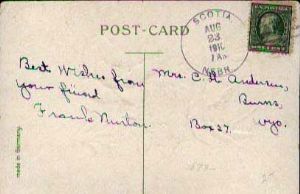 POST-CARD
SCOTIA
AUG
23
NEBR.
Best Wishes from
your friend
Frank
Mrs. C. H. Anderson,
Burns,
Box 27. Wyo.
made in Germany.